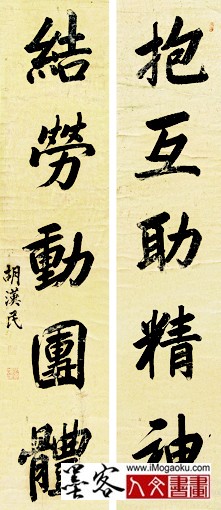 抱互助精神
結勞動團體
胡漢民
墨客
www.iMogaoku.com
人文書畫